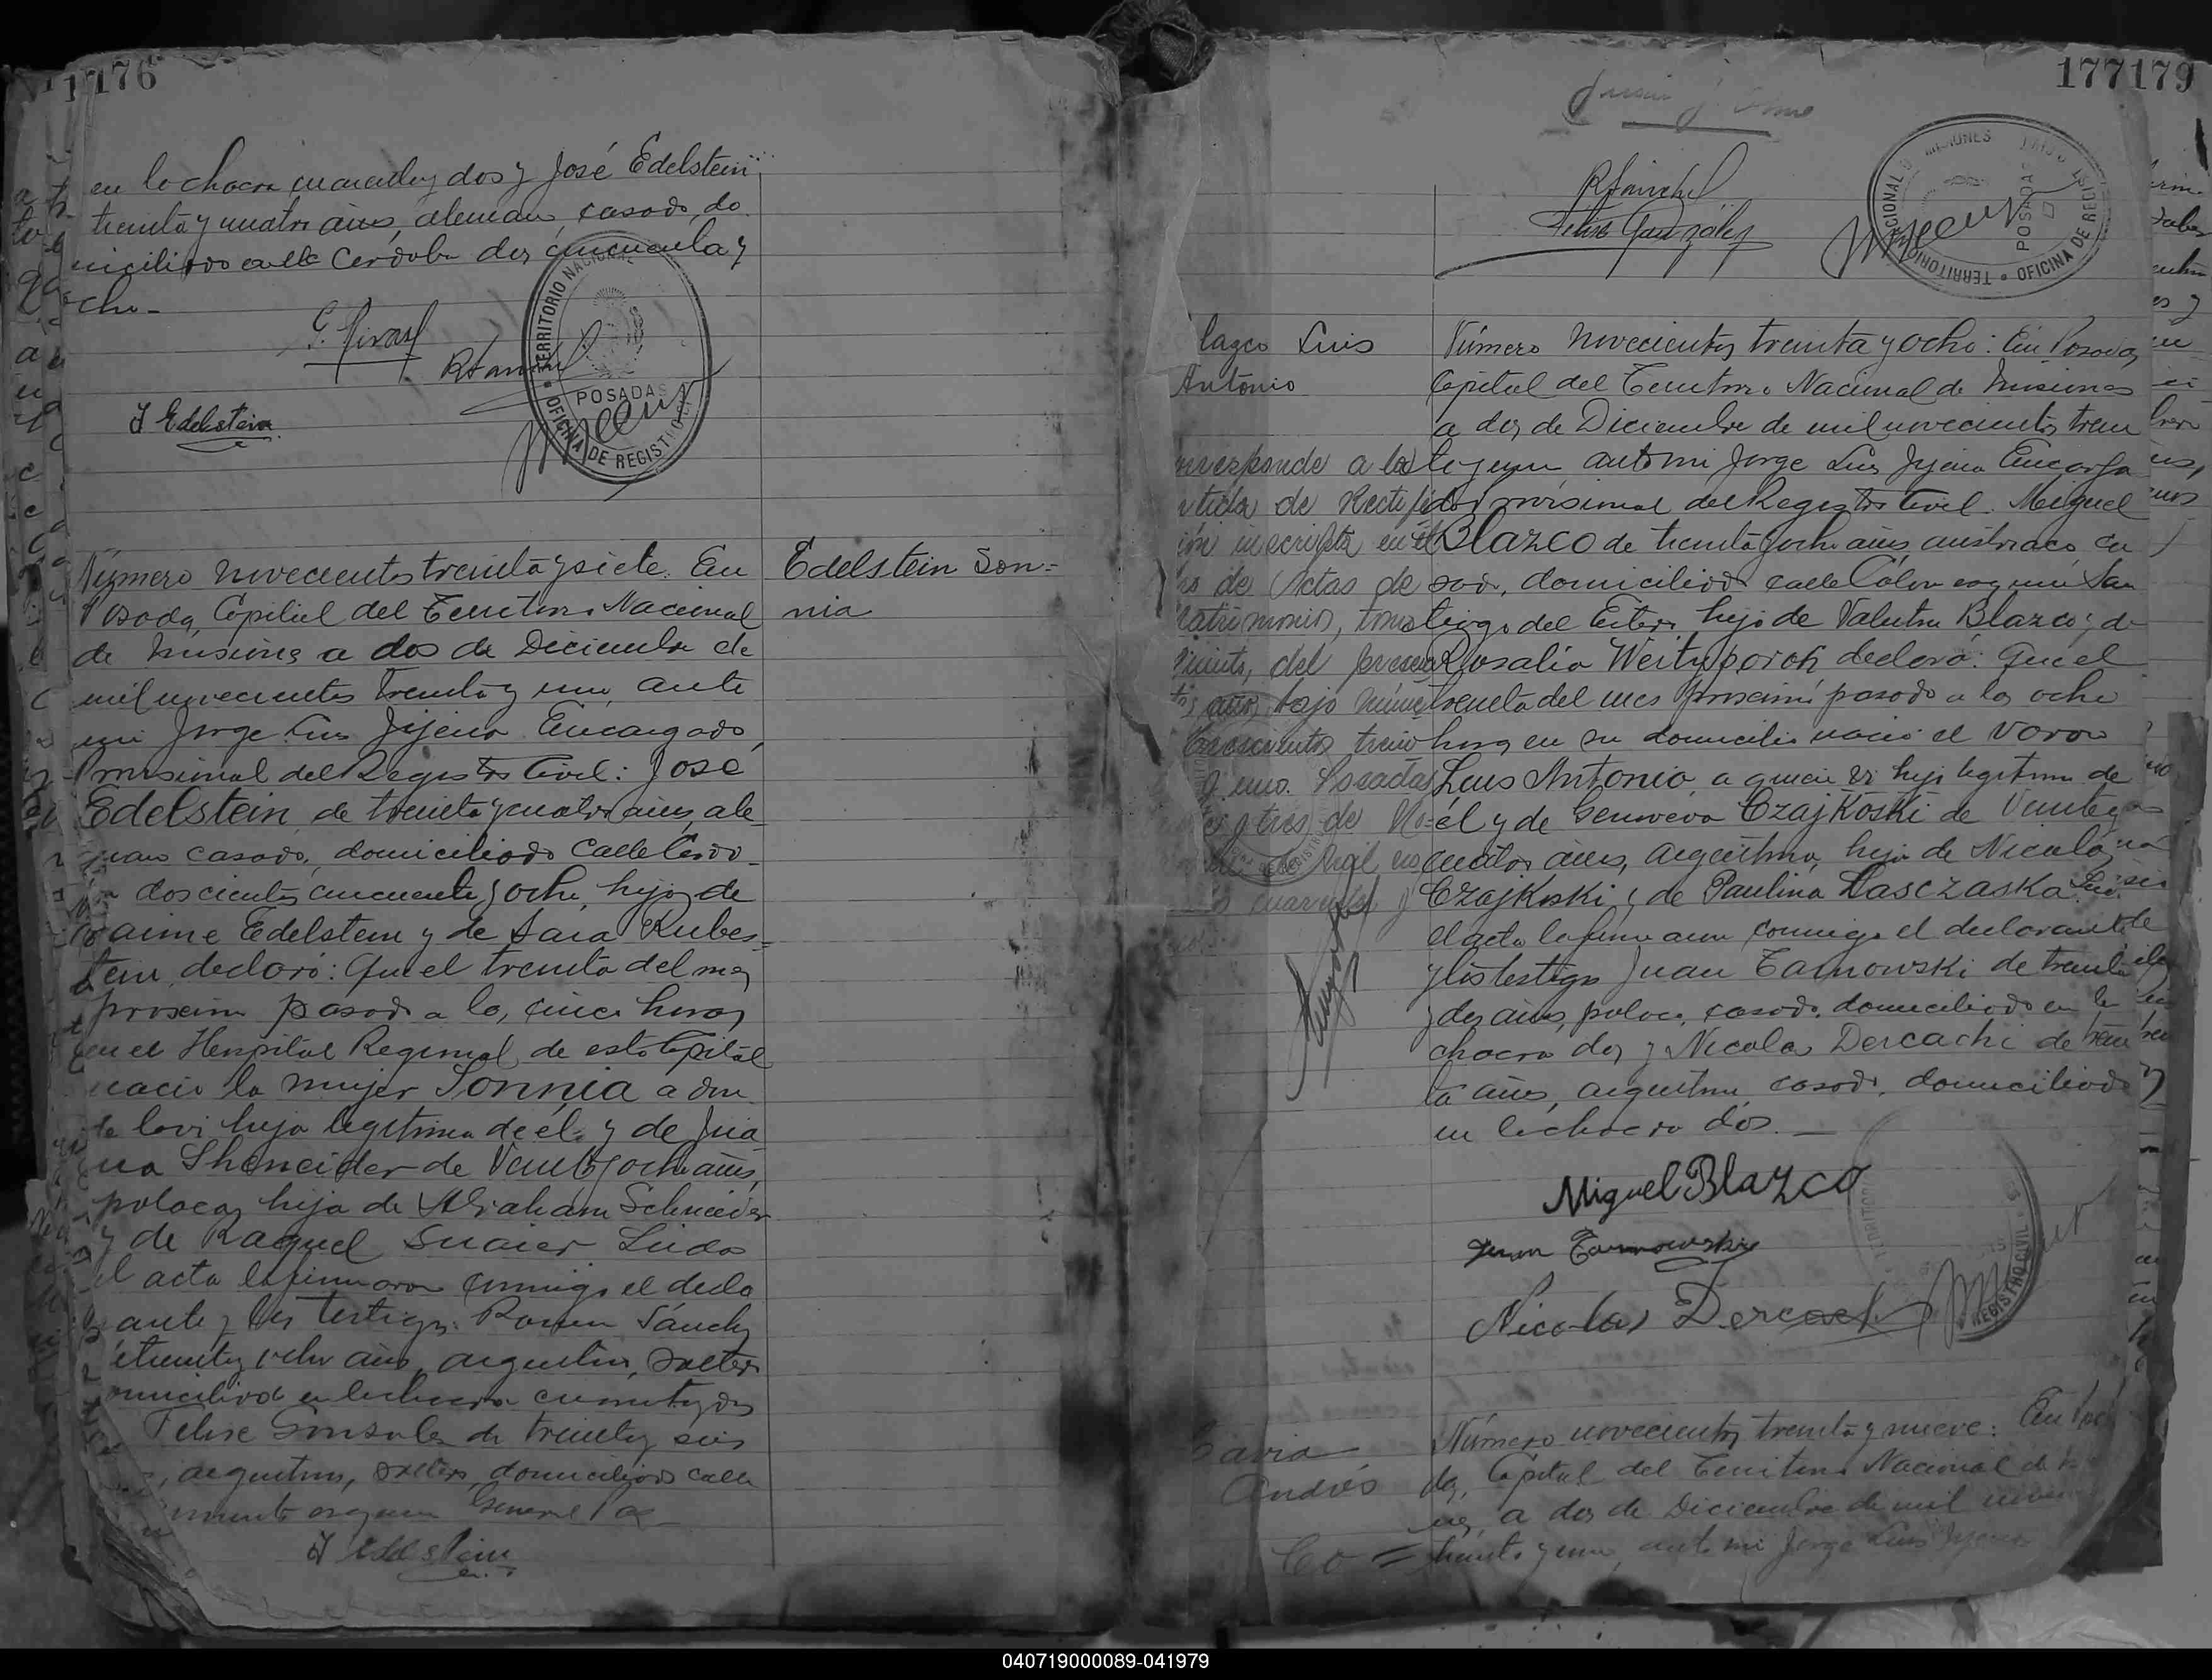 176
en la chacra cuarenta y dos y José Edelstein
treinta y cuatro años, aleman, casado, do
miciliado calle Cordoba dos cincuenta y
cho-
J Edelstein
TERRITORIO NACIONAL
POSADAS
OFICINA DE REGISTRO CIVIL
Número novecientos treinta y siete. En
Posadas, Capital del Territorio Nacional
de Misiones a dos de Diciembre de
mil novecientos treinta y uno, ante
mi Jorge Luis Jijena Encargado
Provisional del Registro Civil: José
Edelstein, de treinta y cuatro años, ale
man casado, domiciliado Calle Cordo
doscientos cincuenta y ocho, hijo de
Jaime Edelstein y de Sara Rubes=
tein, declaró: Que el treinta del mes
proximo pasado a las cinco horas
en el Hospital Regional de esta Capital
nacio la mujer Sonnia a don
de la vi hija legitima de él y de Jua
na Shcneider de Veintiocho años,
polaca, hija de Abraham Schneider
y de Raquel Suaier Leida
el acta la firmaron conmigo el decla
rante y los testigos: Ramon Sánchez
treinta y ocho años, argentino, soltero
omiciliado en la chacra cuarenta y dos
Felise Gonsales de treinta y seis
, argentino, soltero, domiciliado calle
esquina General Paz
J Edelstein
Edelstein Son=
nia
177179
Felise González
MISIONES
POSADAS
TERRITORIO NACIONAL
OFICINA DE REGIS
lazco Luis
Antonio
rresponde a la
rtida de Rectifi
ión inscripta en el
ro de Actas de
atrimonio, tomo
del presen
año, bajo núme
trein
y uno. Posadas
tres de No=
mil
cuarenta y
Número novecientos treinta y ocho: En Posadas,
Capital del Territorio Nacional de Misiones
a dos de Diciembre de mil novecientos trein
ta y uno ante mi Jorge Luis Jijena Encarga
do Provisional del Registro Civil. Miguel
Blazco de treinta y ocho años, austriaco, ca
sado, domiciliado calle Colon esquina San
tiago del Estero, hijo de Valentin Blazco y de
Rosalia Weityporoh declaró: Que el
treinta del mes proximo pasado a las ocho
horas en su domicilio nació el varon
Luis Antonio, a quien vi hijo legitimo de
él y de Genoveva Czajkoski de Veinte y
cuatro años, argentina, hija de Nicolas
Czajkoski y de Paulina Lasczaska. Leida
el acta la firmaron conmigo el declarante
y los testigos Juan Tarnowski de treinta
y dos años, polaco, casado, domiciliado en la
chacra dos y Nicolas Dercachi de trein
ta años, argentino, casado, domiciliado
en la chacra dos.-
Miguel Blazco
Juan Tarnowski
Nicolas Dercach
REGISTRO CIVIL
Savia
Andrés
Número novecientos treinta y nueve: En Posa
das, Capital del Territorio Nacional de Mi
nes, a dos de Diciembre de mil nove
Co = treinta y uno, ante mi Jorge Luis Jijena
040719000089-041979